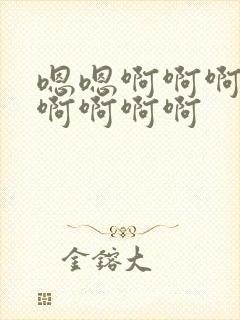 嗯嗯啊啊啊
啊啊啊啊
金鎔大